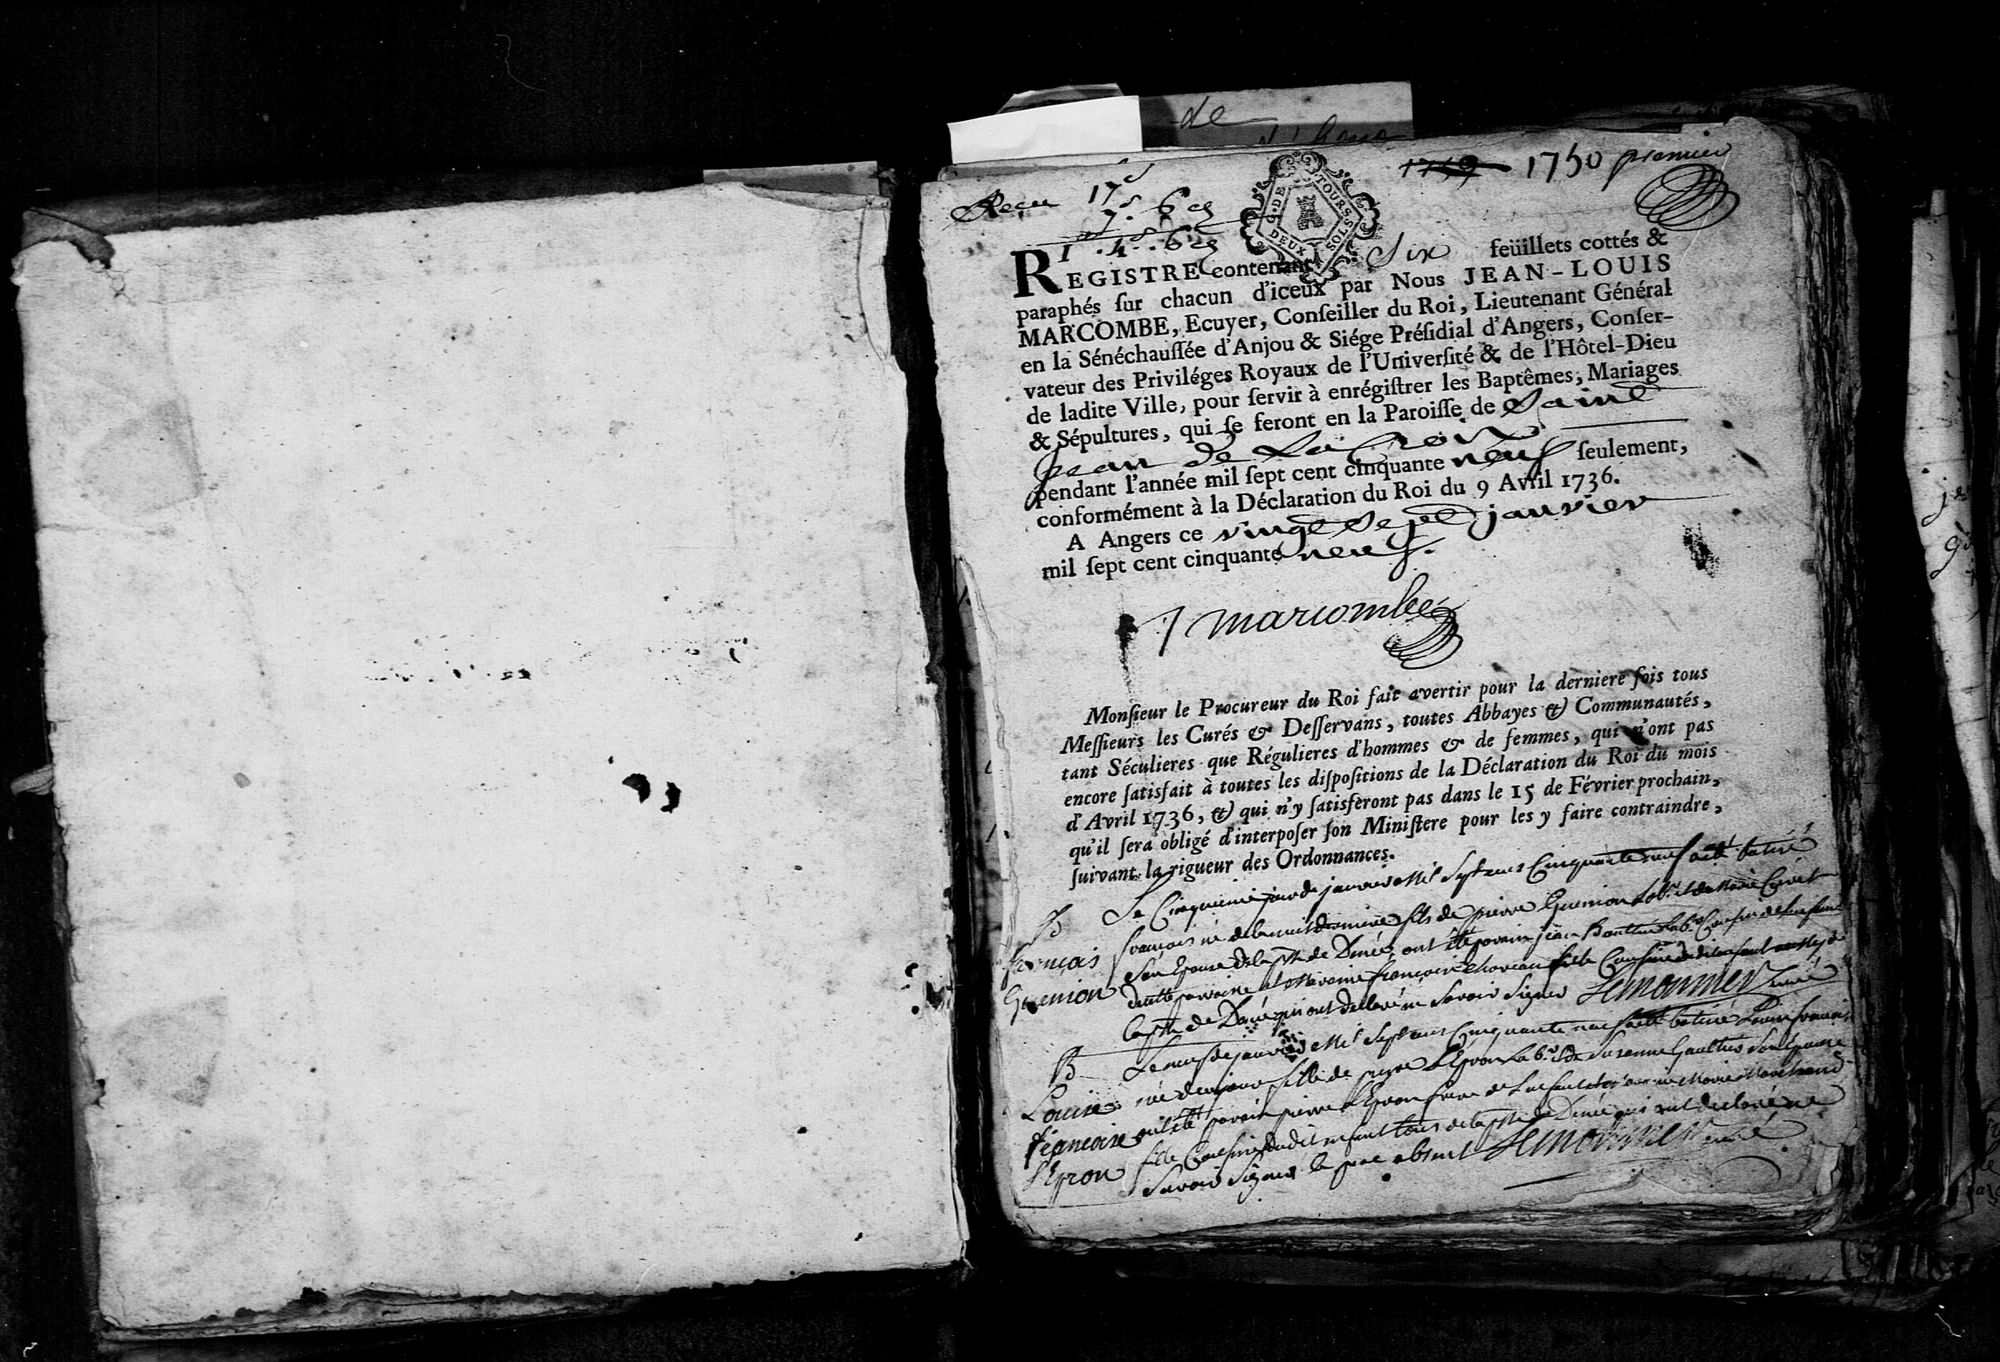 de
1759 1750 premier
Recu 17s
7s. 6d
1. 4s. 6d
G. DE TOURS
DEUX SOLS
REGISTRE contenant Six feüillets cottés &
paraphés sur chacun d'iceux par Nous JEAN-LOUIS
MARCOMBE, Ecuyer, Conseiller du Roi, Lieutenant Général
en la Sénéchaussée d'Anjou & Siége Présidial d'Angers, Conser-
vateur des Priviléges Royaux de l'Université & de l'Hôtel-Dieu
de ladite Ville, pour servir à enrégistrer les Baptêmes, Mariages
& Sépultures, qui se feront en la Paroisse de Saint
Jean de La Croix
pendant l'année mil sept cent cinquante neuf seulement,
conformément à la Déclaration du Roi du 9 Avril 1736.
A Angers ce vingt Sept janvier
mil sept cent cinquante neuf.
marcombe
Monsieur le Procureur du Roi fait avertir pour la derniere fois tous
Messieurs les Curés & Desservans, toutes Abbayes & Communautés,
tant Séculieres que Régulieres d'hommes & de femmes, qui n'ont pas
encore satisfait à toutes les dispositions de la Déclaration du Roi du mois
d'Avril 1736, & qui n'y satisferont pas dans le 15 de Février prochain,
qu'il sera obligé d'interposer son Ministere pour les y faire contraindre,
suivant la rigueur des Ordonnances.
B
françois
Guenion
Le Cinquieme jour de janvier Mil Sept cens Cinquante neuf a été batisé
francois né de la nuit derniere fils de pierre Guenion Lab.r et de Marie
Son Epouse de la psse de Denée, ont été parain jean Lab.r Cousin de
de cette paroisse et Maraine françoise fille Cousine dudit enfant
la psse de Denée qui ont declaré ne Savoir Signer Lemonnier curé
B
Louise
françoise
l'Epron
Le neuf de janvier Mil Sept cens Cinquante neuf a été batisé Louise francoise
née de ce jour fille de pierre l'Epron Lab.r et de Suzanne Gaultier Son Epouse
ont été parain pierre l'Epron frere de L'enfant et maraine Marie Marchand
fille Cousine dudit enfant tous de la psse de Denée qui ont declaré ne
Savoir Signer le pere absent Lemonnier curé